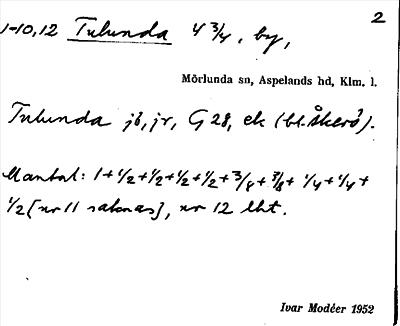 2
1-10,12 Tulunda 4 3/4, by,
Mörlunda sn, Aspelands hd, Klm. l.
Tulunda jb, jr, G 28, ek (bl. Åkerö).
Mantal: 1+1/2+1/2+1/2+1/2+3/8+3/8+1/4+1/4+
1/2 [nr 11 saknas], nr 12 lht.
Ivar Modéer 1952